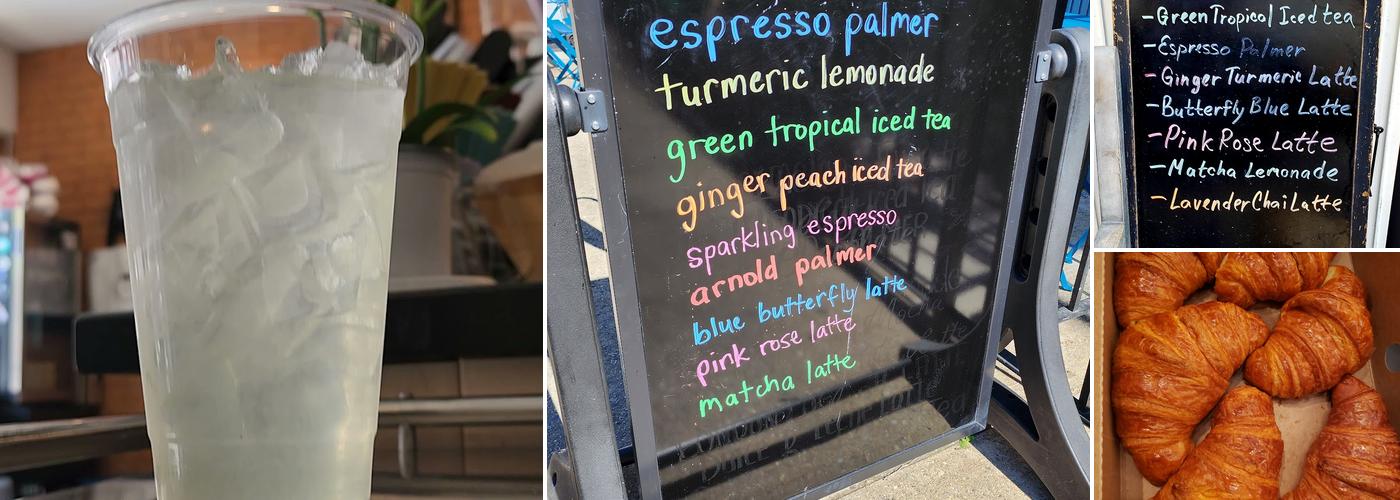 espresso palmer
turmeric lemonade
green tropical iced tea
ginger peach iced tea
sparkling espresso
arnold palmer
blue butterfly latte
pink rose latte
matcha latte
- Green Tropical Iced tea
- Espresso Palmer
- Ginger Turmeric Latte
- Butterfly Blue Latte
- Pink Rose Latte
- Matcha Lemonade
- Lavender Chai Latte